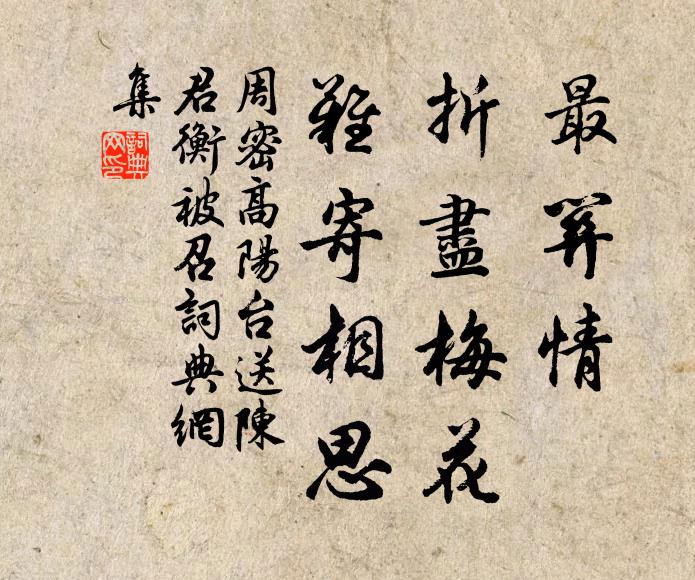 最關情
折盡梅花
難寄相思
周密高陽台送陳
君衡被召詞典網
集
詞典
网印